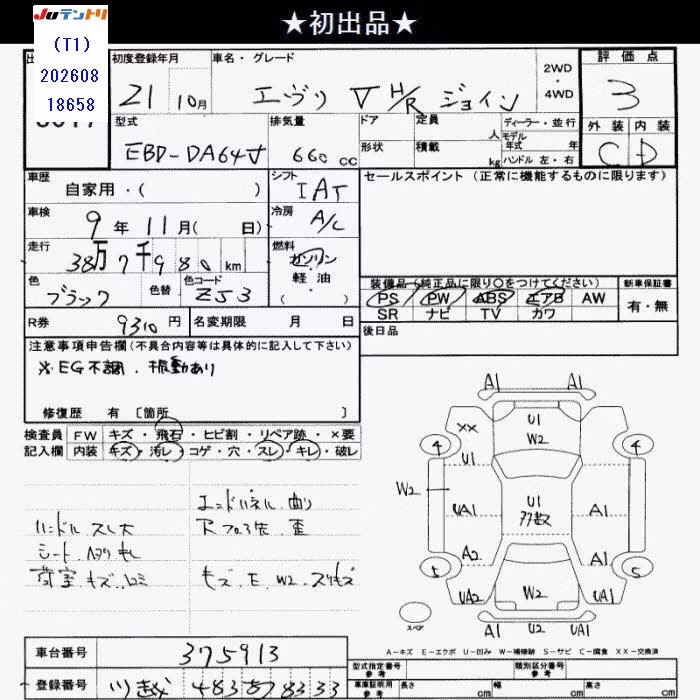 ★初出品★
JUテントリ
(T1)
202608
18658
初度登録年月 車名・グレード 2WD・4WD 評価点
21 10月 エヴリ V H/R ジョイン 3
型式 排気量 ドア 定員 人 ディーラー・並行 外装 内装
モデル年式 年
EBD-DA64V 660 cc 形状 積載 kg ハンドル 左・右 C D
車歴 自家用・( ) シフト IAT セールスポイント (正常に機能するものに限ります)
車検 9年 11月( 日) 冷房 A/C
走行 38万7千980 km 燃料 ガソリン 軽油 ( )
色 ブラック 色替 色コード ZJ3
装備品(純正品に限り○をつけてください) 新車保証書
PS PW ABS エアB AW 有・無
SR ナビ TV カワ
R券 9310円 名変期限 月 日 後日品
注意事項申告欄(不具合内容等は具体的に記入して下さい)
※EG不調.振動あり
修復歴 有 [箇所 ]
検査員 FW キズ・飛石・ヒビ割・リペア跡・×要
記入欄 内装 キズ・汚レ・コゲ・穴・スレ・キレ・破レ
エンドパネル.曲り
ハンドル スレ大
シート.
荷室.キズ.
キズ.E.W2.スリキズ
A1 A1
XX U1 W2
4 4
U1
W2 UA1 U1 多数 A1
A2 A1
5 5
UA2 W2 UA1
スペア A1 U2 UA1
A-キズ E-エクボ U-凹み W-補修跡 S-サビ C-腐食 XX-交換済
車台番号 375913
型式指定番号 参考 類別区分番号 参考
登録番号 川越 483 8333
車庫証明用 参考 長さ cm 幅 cm 高さ cm